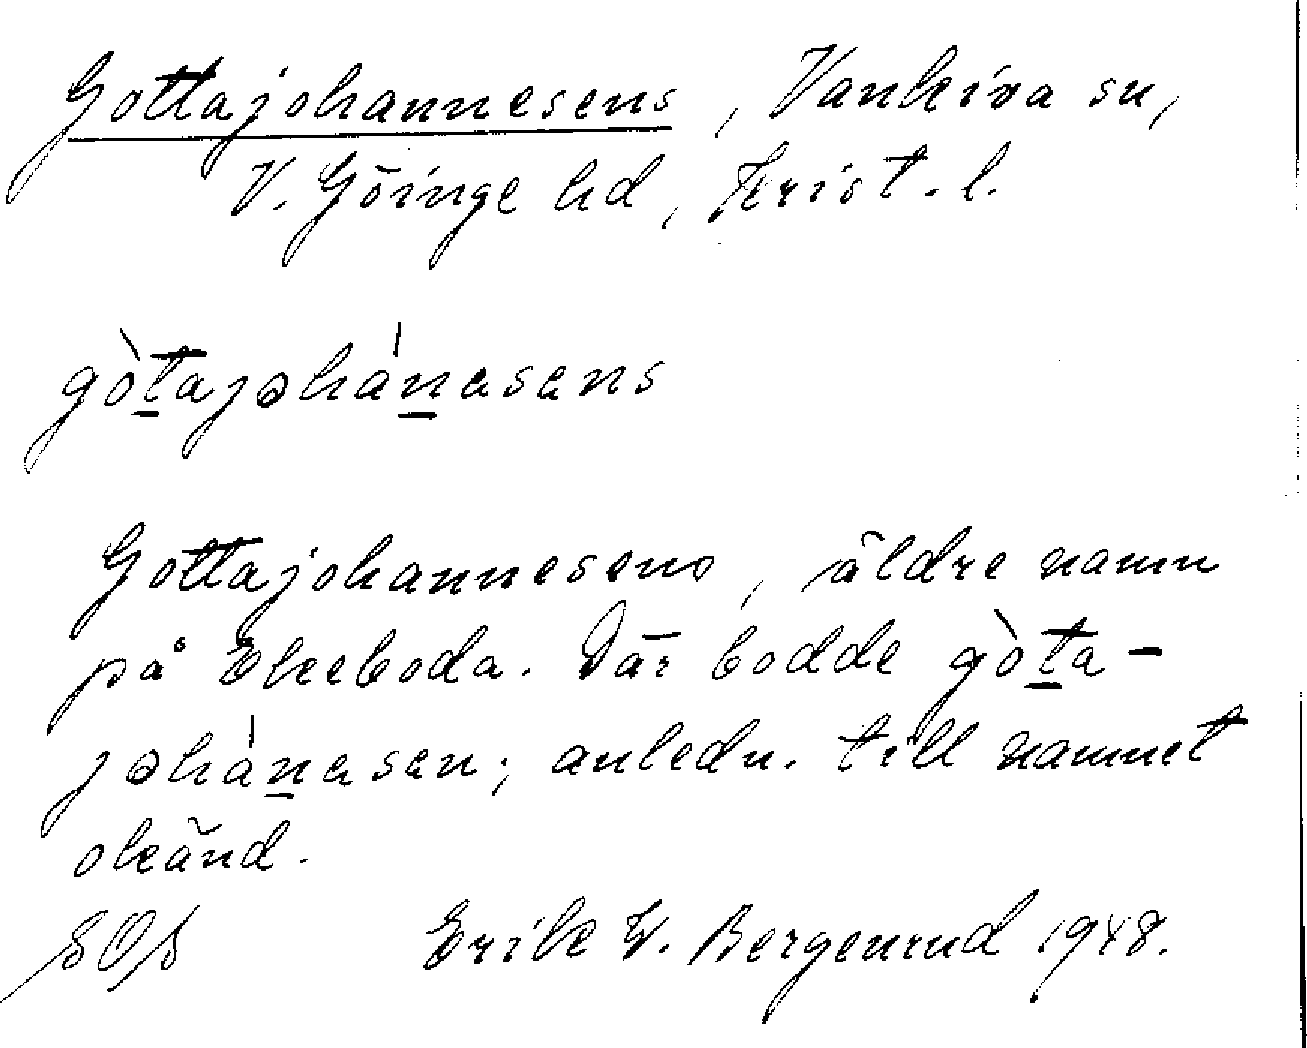 Gottajohannesens, Vankiva sn,
V. Göinge hd, Krist. l.
gòtajohànasens
Gottajohannesens, äldre namn
på Ekeboda. Där bodde gòta-
johànasen; anledn. till namnet
okänd.
Erik W. Bergenrud 1948.